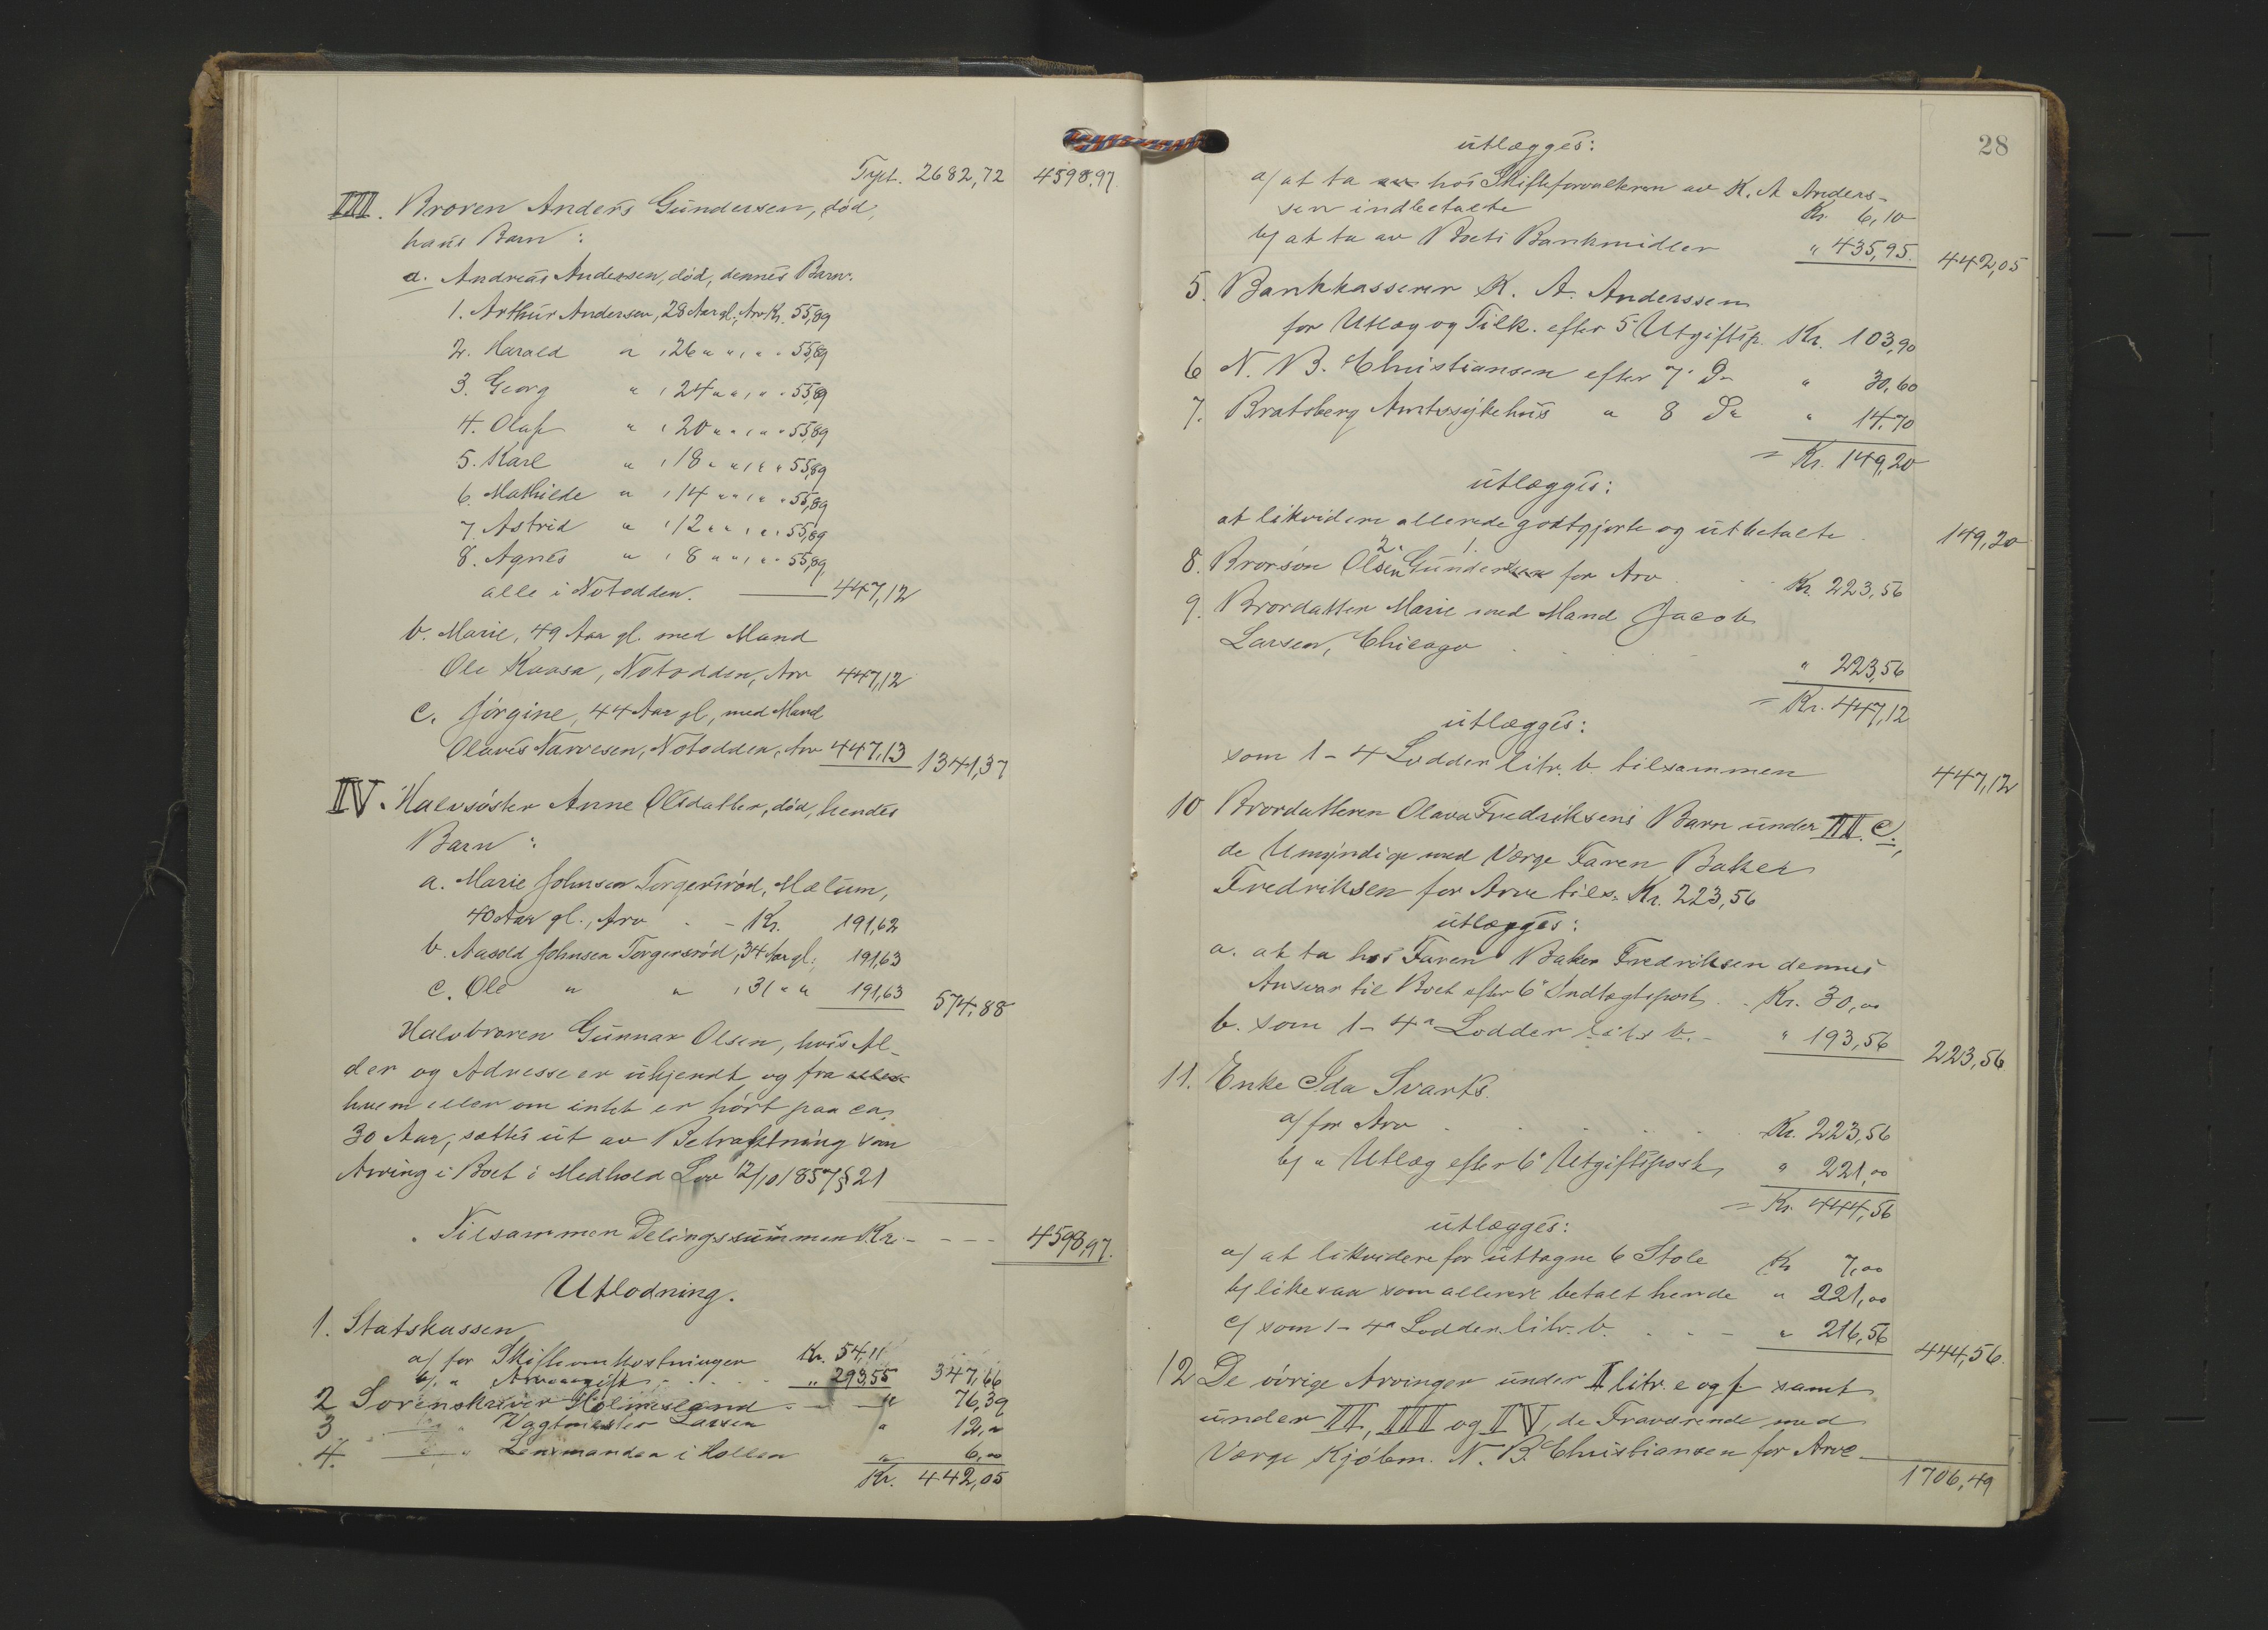 Trpt. 2682,72 4598,97
III. Broren Anders Gundersen, død,
hans Barn:
a. Andreas Andersen, død, dennes Barn:
1. Arthur Andersen, 28 Aar gl., Arv Kr. 55,89
2. Harald " , 26 " " , " " 55,89
3. Georg " , 24 " " , " " 55,89
4. Olaf " , 20 " " , " " 55,89
5. Karl " , 18 " " , " " 55,89
6. Mathilde " , 14 " " , " " 55,89
7. Astrid " , 12 " " , " " 55,89
8. Agnes " , 8 " " , " " 55,89
alle i Notodden. 447,12
b. Marie, 49 Aar gl. med Mand
Ole Kaasa, Notodden, Arv 447,12
c. Jörgine, 44 Aar gl, med Mand
Olaves Narvesen, Notodden, Arv 447,13 1341,37
IV. Halvsöster Anne Olsdatter, död, hendes
Barn:
a. Marie Johnsen Torgersröd, Mælum,
40 Aar gl., Arv - - Kr. 191,62
b. Aasold Johnsen Torgersröd, 34 Aar gl. 191,63
c. Ole " " , 31 " " 191,63 574,88
Halvbroren Gunnar Olsen, hvis Al-
der og Adresse er ukjendt og fra
hvem eller om intet er hört paa ca.
30 Aar, sættes ut av Betragtning som
Arving i Boet i Medhold Lov 12/10 1857 § 21
Tilsammen Delingssummen Kr. - - - 4598,97.
Utlodning.
1. Statskassen
a/ for Skifteomkostninger Kr. 54,11
b/ " Arveavgift " 293,55 347,66
2 Sorenskriver Holmesland - " 76,39
3 " Vagtmester Larsen " 12,"
4. " Lensmanden i Hollen " 6,00
Kr. 442,05
28
utlægges:
a/ at ta hos Skifteforvalteren av K. A Anders-
sen indbetalte Kr. 6,10
b/ at ta av Boets Bankmidler " 435,95. 442,05
5. Bankkasserer K. A. Anderssen
for Utlæg og Tilk. efter 5 Utgiftsp. Kr. 103,90
6 N. B. Christiansen efter 7. Do " 30,60
7. Bratsberg Amtssykehus " 8 Do " 14,70
= Kr. 149,20
utlægges:
at likvidere allerede godtgjorte og utbetalte 149,20
2. 1.
8. Brorsön Olsen Gunder for Arv Kr. 223,56
9. Brordatter Marie med Mand Jacob
Larsen, Chicago " 223,56
= Kr. 447,12
utlægges:
som 1 - 4 Lodder litr. b. tilsammen 447,12
10 Brordatteren Olava Fredriksens Barn under II. C.,
de Umyndige med Værge Faren Baker
Fredriksen for Arve tils. Kr. 223,56
utlægges:
a. at ta hos Faren Baker Fredriksen dennes
Ansvar til Boet efter 6te Indtægtspost Kr. 30,00
b. som 1 - 4 Lodder litr b. - " 193,56 223,56
11. Enke Ida Svarks.
a/ for Arv Kr. 223,56
b/ " Utlæg efter 6te Utgiftspost " 221,00
= Kr. 444,56
utlægges:
a/ at likvidere for uttagne 6 Stole Kr 7,00
b/ likesaa som allerede betalt hende " 221,00
c/ som 1 - 4 Lodder litr. b. " 216,56 444,56.
12 De övrige Arvinger under I litr. e og f samt
under II, III og IV, de Fraværende med
Værge Kjöbm. N. B. Christiansen for Arve
1706,49